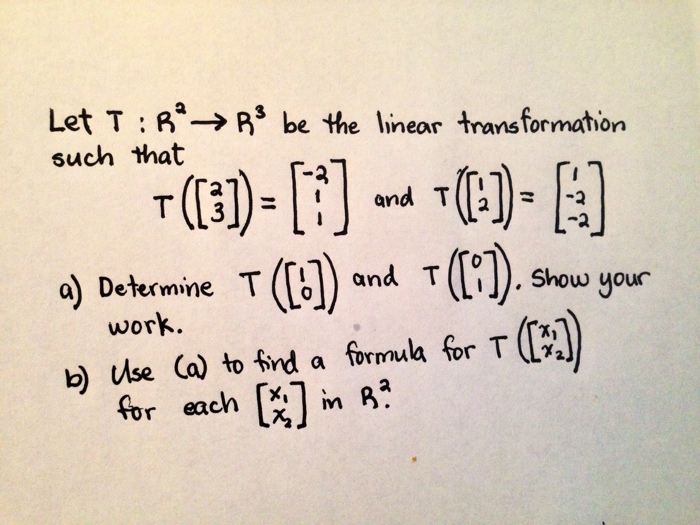 Let T : R² → R³ be the linear transformation
such that
T([2 3]) = [-2 1 1] and T([1 2]) = [1 -2 -2]
a) Determine T([1 0]) and T([0 1]). Show your
work.
b) Use (a) to find a formula for T([x₁ x₂])
for each [x₁ x₂] in R².